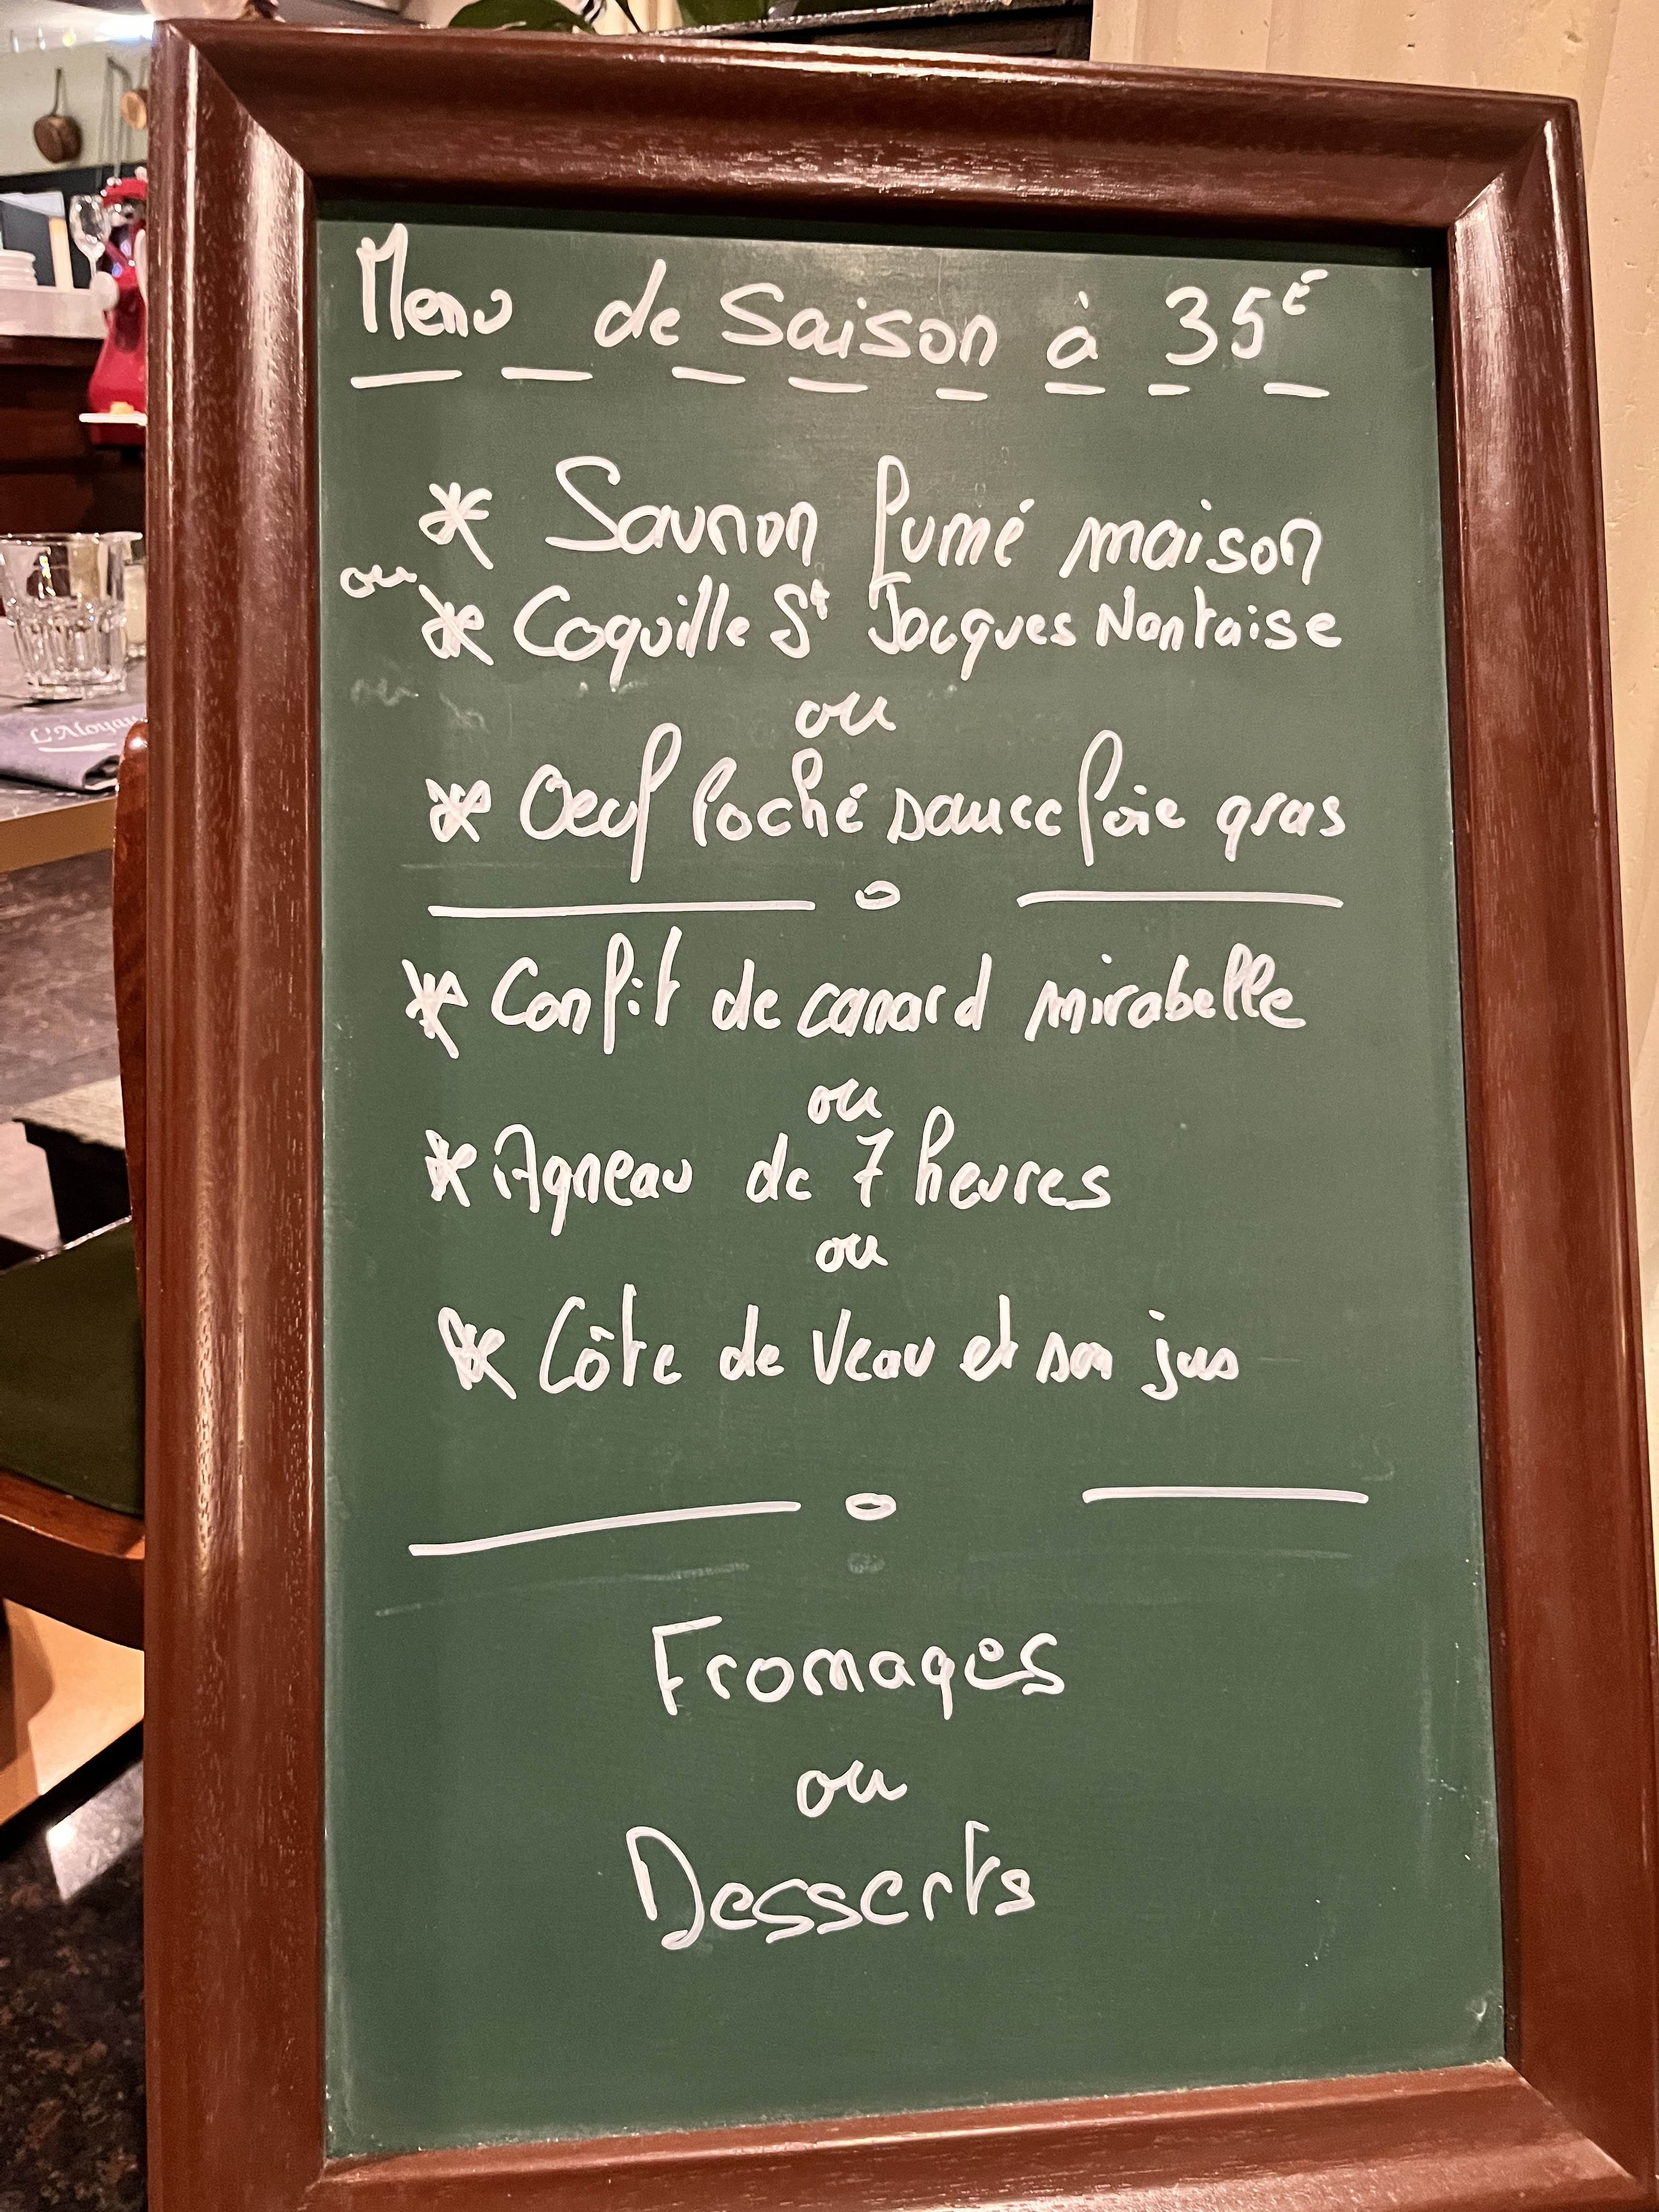 Menu de Saison à 35€
* Saumon fumé maison
ou * Coquille St Jacques Nantaise
ou
* Oeuf Poché sauce foie gras
* Confit de canard mirabelle
ou
* Agneau de 7 heures
ou
* Côte de Veau et son jus
Fromages
ou
Desserts